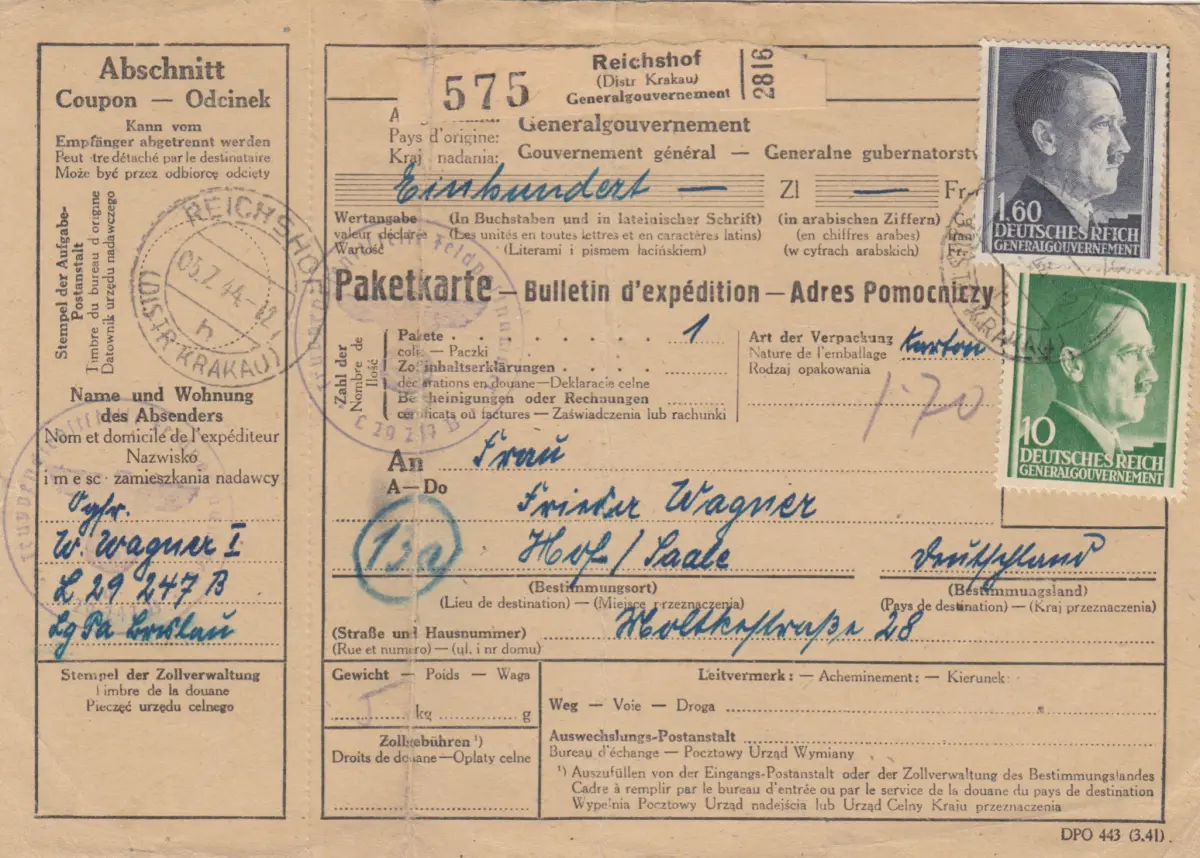 Abschnitt
Coupon — Odcinek
Kann vom
Empfänger abgetrennt werden
Peut tre détaché par le destinataire
Może być przez odbiorcę odcięty
Stempel der Aufgabe-
Postanstalt
Timbre du bureau d'origine
Datownik urzędu nadawczego
REICHSHOF
05.7.44-12
h
(DISTR KRAKAU)
Name und Wohnung
des Absenders
Nom et domicile de l'expéditeur
Nazwisko
i m e sc zamieszkania nadawcy
Ogfr.
W. Wagner I
L 29 247 B
Lg Pa Breslau
Stempel der Zollverwaltung
Timbre de la douane
Pieczęć urzędu celnego
575
Reichshof
(Distr Krakau)
Generalgouvernement
2816
A
Generalgouvernement
Pays d'origine:
Gouvernement général — Generalne gubernatorst
Kraj nadania:
Einhundert — Zl — Fr
Wertangabe (In Buchstaben und in lateinischer Schrift) (in arabischen Ziffern)
valeur déclarée (Les unités en toutes lettres et en caractères latins) (en chiffres arabes)
Wartość (Literami i pismem łacińskiem) (w cyfrach arabskich)
Paketkarte — Bulletin d'expédition — Adres Pomocniczy
Zahl der
Nombre de
Ilość
Pakete 1
colis — Paczki
Zollinhaltserklärungen
déclarations en douane—Deklaracie celne
Bescheinigungen oder Rechnungen
certificats ou factures — Zaświadczenia lub rachunki
Art der Verpackung Karton
Nature de l'emballage
Rodzaj opakowania
1·70
L 29 247 B
An Frau
A—Do
Frieder Wagner
13a
Hof/Saale Deutschland
(Bestimmungsort) (Bestimmungsland)
(Lieu de destination) — (Miejsce przeznaczenia) (Pays de destination) — (Kraj przeznaczenia)
(Straße und Hausnummer) Moltkestraße 28
(Rue et numéro) — (ul. i nr domu)
Gewicht — Poids — Waga
kg g
Zollgebühren ¹)
Droits de douane—Opłaty celne
Leitvermerk: — Acheminement: — Kierunek:
Weg — Voie — Droga
Auswechslungs-Postanstalt
Bureau d'échange — Pocztowy Urząd Wymiany
¹) Auszufüllen von der Eingangs-Postanstalt oder der Zollverwaltung des Bestimmungslandes
Cadre à remplir par le bureau d'entrée ou par le service de la douane du pays de destination
Wypełnia Pocztowy Urząd nadejścia lub Urząd Celny Kraju przeznaczenia
DPO 443 (3.41)
1.60
DEUTSCHES REICH
GENERALGOUVERNEMENT
10
DEUTSCHES REICH
GENERALGOUVERNEMENT